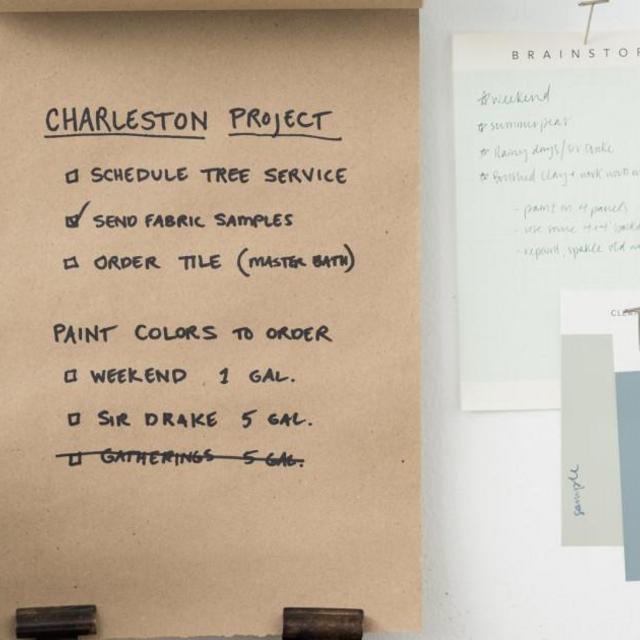 CHARLESTON PROJECT
SCHEDULE TREE SERVICE
SEND FABRIC SAMPLES
ORDER TILE (MASTER BATH)
PAINT COLORS TO ORDER
WEEKEND 1 GAL.
SIR DRAKE 5 GAL.
GATHERINGS 5 GAL.
BRAINSTOR
weekend
summer pear
Rainy days/Sir Drake
- paint on 4 panels
sample